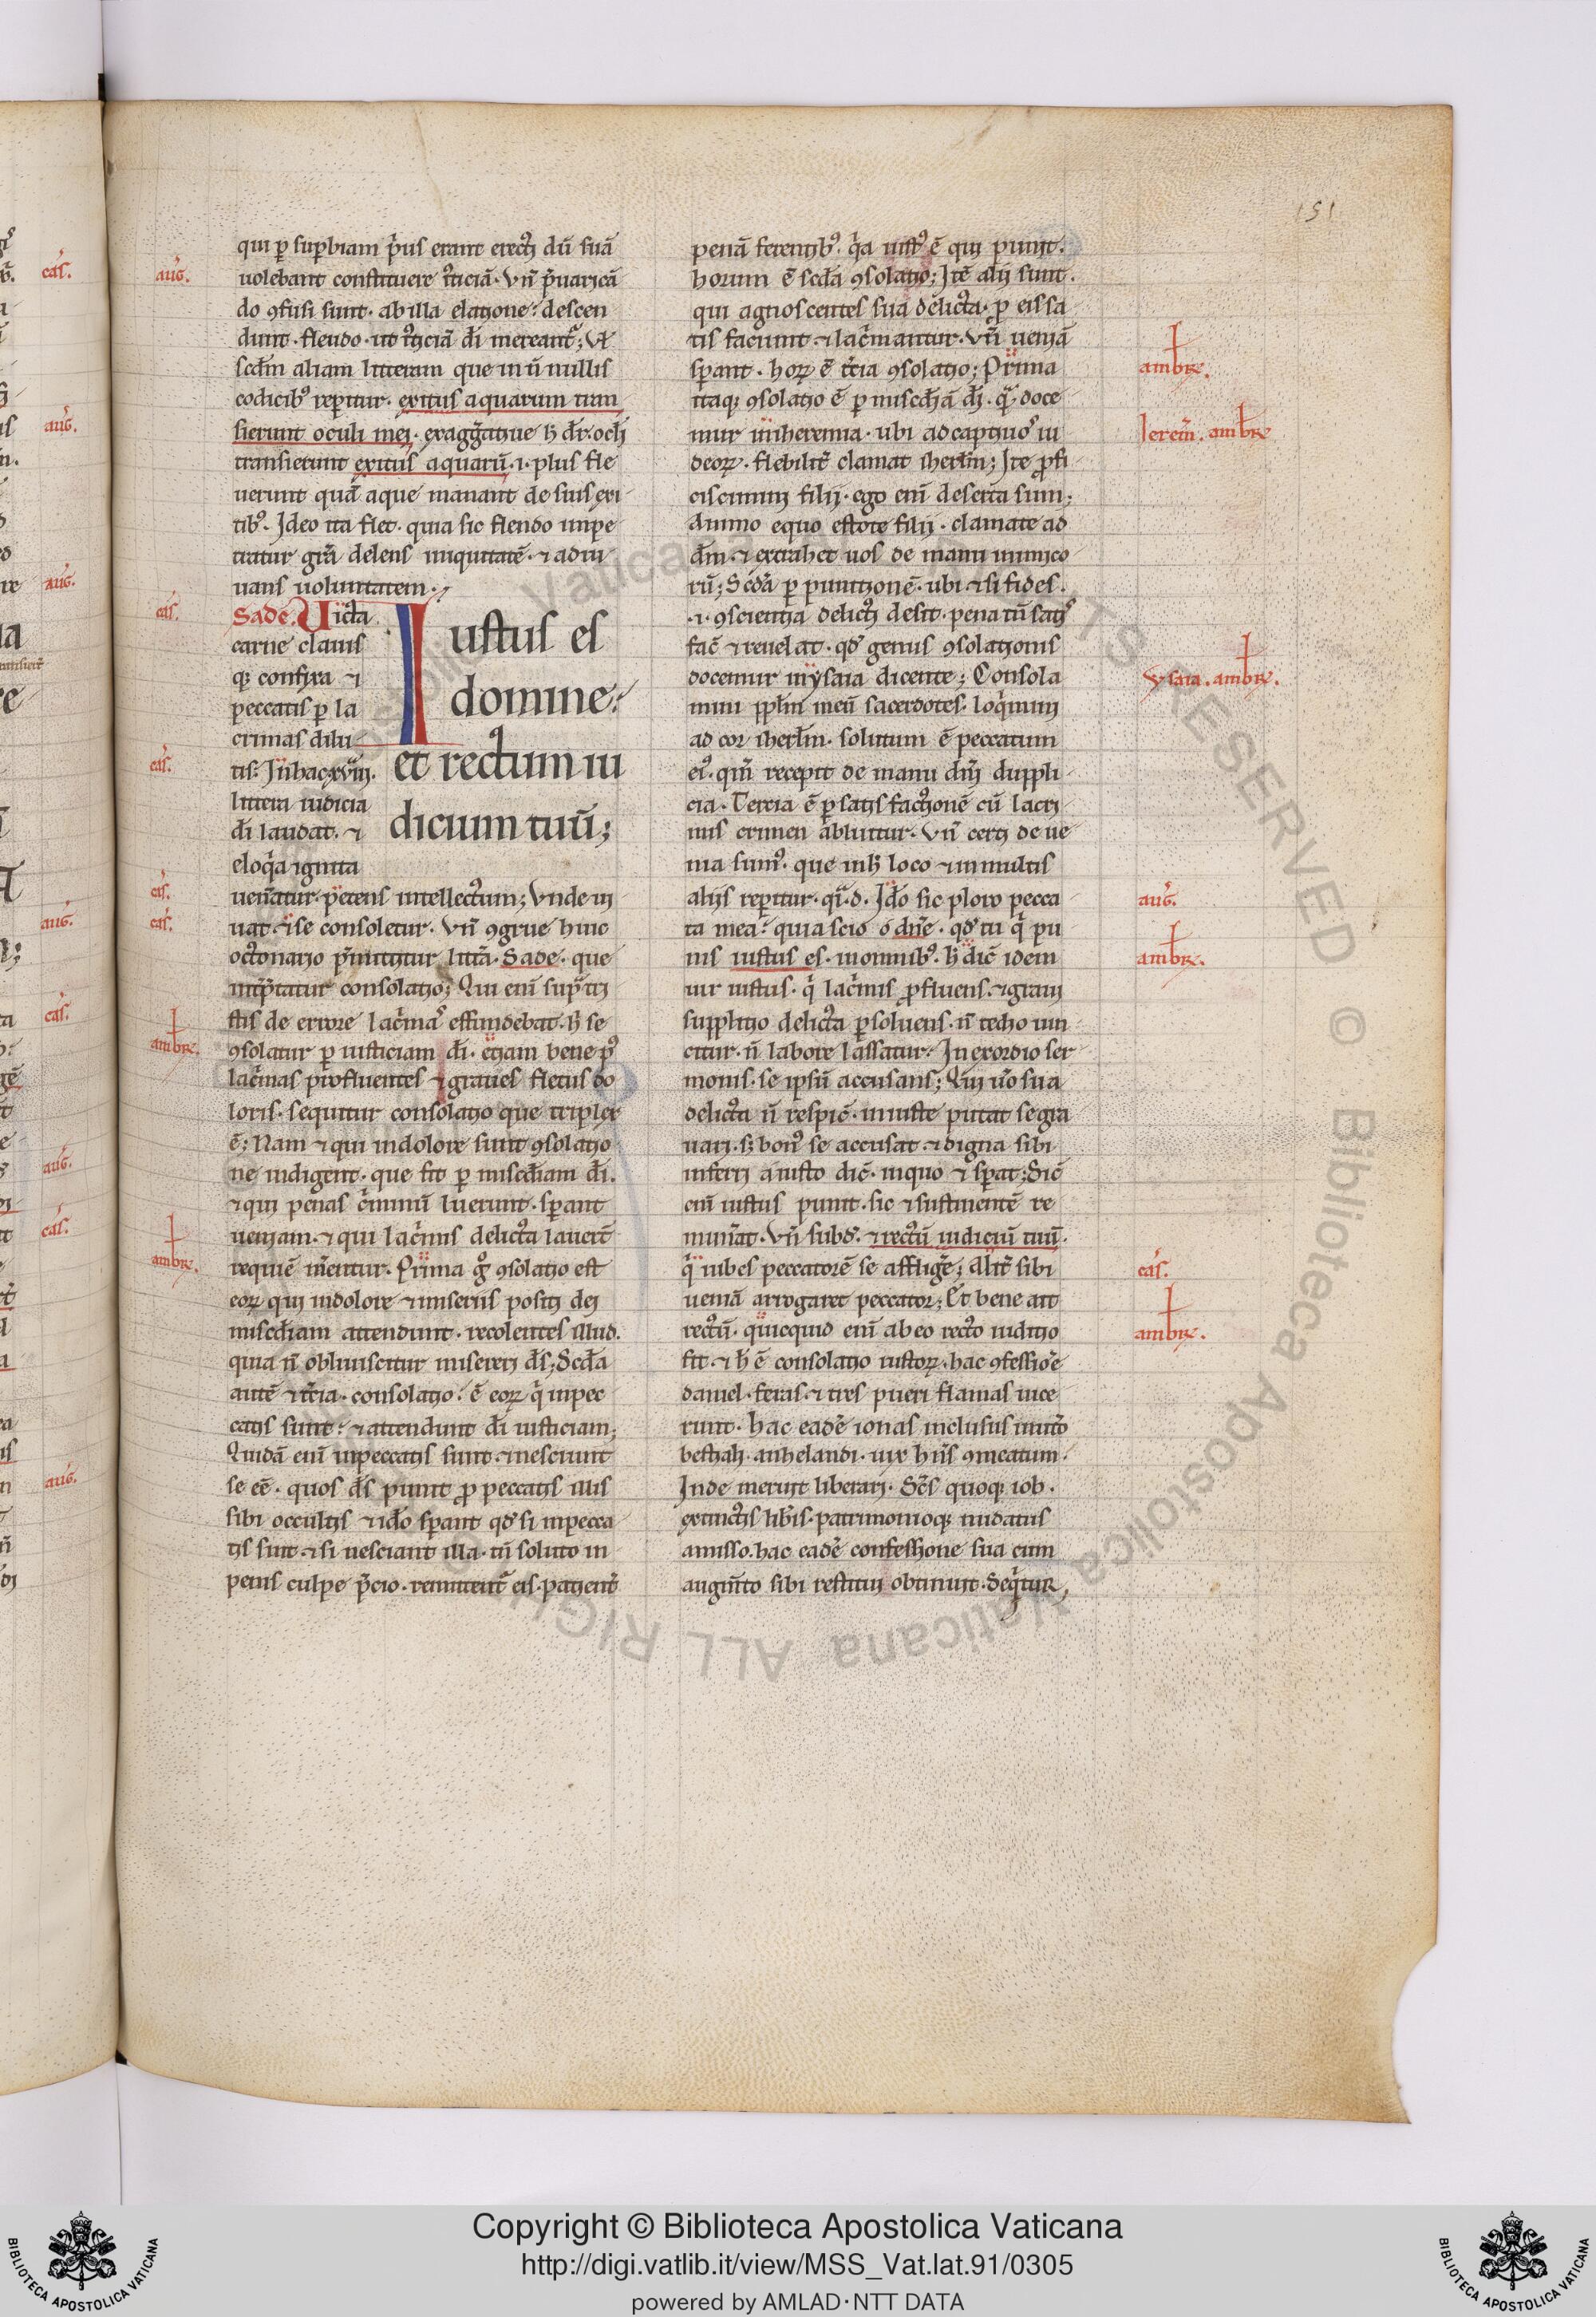 151
qui ꝑ suꝑbiam p̾us erant erecti dū suā
uolebant constituere iᷤticiā· vn̄ p̾uaricā
do ꝯfusi sunt· ab illa elatione: descen
dunt· flendo· ut iᷤticiā di̅ mereant᷑; Vł
scd̄m aliam litteram que in ū nullis
codicibꝰ reꝑitur· exitus aquarum tran
sierunt oculi mei· exagg̾atiue h̄ dr̄· oculi
transierunt exitus aquarū·.i· plus fle
uerunt quā aque manant de suis exi
tibꝰ· Ideo ita flet· quia sic flendo impe
tratur gr̄a delens iniquitatē· ⁊ adiu
uans uoluntatem·
Sade. Uicta
carne clauis
qꝫ confixa ⁊
peccatis ꝑ la
crimas dilu
tis: In hac xviii.
littera iudicia
di̅ laudat· ⁊
eloq̾a ignita
Iustus es
domine:
et rectum iu
dicium tuū;
uen̄atur· petens intellectum; Vnde iu
uat· ⁊ se consoletur· vn̄ ꝯgrue huic
octonario p̾mittitur litt̄a· Sade· que
int̾p̾tatur consolatio; Qui eni̅ sup̾ tri
stis de errore lac̾mas effundebat· h̄ se
ꝯsolatur ꝑ iusticiam di̅· etiam bene pꝰ
lac̾mas profluentes ⁊ graues fletus do
loris· sequitur consolatio que triplex
ē; Nam ⁊ qui in dolore sunt ꝯsolatio
ne indigent· que fit ꝑ misc̄diam di̅·
⁊ qui penas c̾minū luerunt· sꝑant
ueniam· ⁊ qui lac̾mis delicta lauerīt
requiē m̄entur· Prima gͦ ꝯsolatio est
eoꝝ qui in dolore ⁊ miseriis positi dei
misc̄diam attendunt· recolentes illud·
quia n̄ obliuiscitur misereri d̄s; Scd̄a
autē ⁊ t̾cia· consolatio: ē eoꝝ q̾ in pec
catis sunt: ⁊ attendunt di̅ iusticiam;
Quidā eni̅ in peccatis sunt· ⁊ nesciunt
se ēē· quos d̄s punit ꝓ peccatis illis
sibi occultis ⁊ id̄o sꝑant qd̾ si in pecca
tis sint· ⁊ si nesciant illa· tn̄ soluto in
penis culpe p̾cio· remittent᷑ eis· patient̾
penā ferentibꝰ· q̾a iustꝰ ē qui punit·
horum ē scd̄a ꝯsolatio; Itē alii sunt·
qui agnoscentes sua delicta· ꝓ eis sa
tis faciunt· ⁊ lac̾mantur· vn̄ ueniā
sꝑant· hoꝝ ē t̾cia ꝯsolatio; Prima
itaqꝫ ꝯsolatio ē ꝑ misc̄diā di̅· q̾ doce
mur in iheremia· ubi ad captiuos iu
deoꝝ· flebilit̾ clamat iherl̄m; Ite ꝓfi
ciscimini filii· ego eni̅ deserta sum;
Animo equo estote filii· clamate ad
dm̄· ⁊ extrahet uos de manu inimico
rū; Scd̄a ꝑ punitionē· ubi ⁊ si fides·
.i· ꝯscientia delicti desit· pena tn̄ satis
fac̄ ⁊ reuelat· qd̾ genus ꝯsolationis
docemur in ysaia dicente; Consola
mini ppl̄m meū sacerdotes· loq̾mini
ad cor iherl̄m· solutum ē peccatum
eiꝰ· qm̄ recepit de manu dn̄i duppli
cia· Tercia ē ꝑ satisfactionē cū lacri
mis crimen abluitur· vn̄ certi de ue
nia sumꝰ· que in h̄ loco ⁊ in multis
aliis reꝑitur· q·i·d· Id̄o sic ploro pecca
ta mea: quia scio o dn̄e· qd̾ tu q̾ pu
nis iustus es· in omnibꝰ· h̄ dic̄ idem
uir iustus· q̾ lac̾mis ꝓfluens· ⁊ graui
supplitio delicta ꝑsoluens· n̄ tedio uin
citur· n̄ labore lassatur: In exordio ser
monis· se ipsū accusans; Qui ū̊ sua
delicta n̄ respic̄· iniuste putat se gra
uari· sꝫ bonꝰ se accusat ⁊ digna sibi
inferri a iusto dic̄· in quo ⁊ sꝑat; Sic̄
eni̅ iustus punit· sic ⁊ sustinentē re
mun̄at· Vn̄ subd̾· ⁊ rectū iudiciū tuū·
q̾ iubes peccatorē se affliḡe; Alit̾ sibi
ueniā arrogaret peccator; Et bene ait
rectū· quicquid eni̅ ab eo recto iuditio
fit· ⁊ h̄ ē consolatio iustoꝝ· hac ꝯfessiōe
daniel· feras· ⁊ tres pueri flamas uice
runt· hac eadē ionas inclusus in utͦ
bestiali· anhelandi· uix hn̄s ꝯmeatum·
Inde meruit liberari· Sc̄s quoqꝫ iob·
extinctis lib̾is· patrimonioqꝫ nudatus
amisso· hac eadē confessione sua cum
augm̄to sibi restitui obtinuit· Seq̾tur,
auḡ.
cas̄.
cas̄.
cas̄.
cas̄.
ambr̄.
ambr̄.
ambr̄.
Ierem̄. ambr̄
ysaia. ambr̄.
auḡ.
ambr̄.
cas̄.
ambr̄.
cas̄.
auḡ.
auḡ.
auḡ.
cas̄.
auḡ.
cas̄.
auḡ.
© Biblioteca Apostolica Vaticana ALL RIGHTS RESERVED
Copyright © Biblioteca Apostolica Vaticana
http://digi.vatlib.it/view/MSS_Vat.lat.91/0305
powered by AMLAD·NTT DATA
BIBLIOTECA APOSTOLICA VATICANA
BIBLIOTECA APOSTOLICA VATICANA